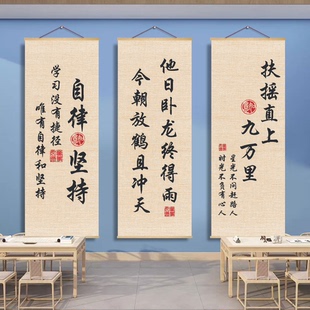 扶摇直上
九万里
星光不问赶路人
时光不负有心人
他日卧龙终得雨
今朝放鹤且冲天
自律坚持
学习没有捷径
唯有自律和坚持